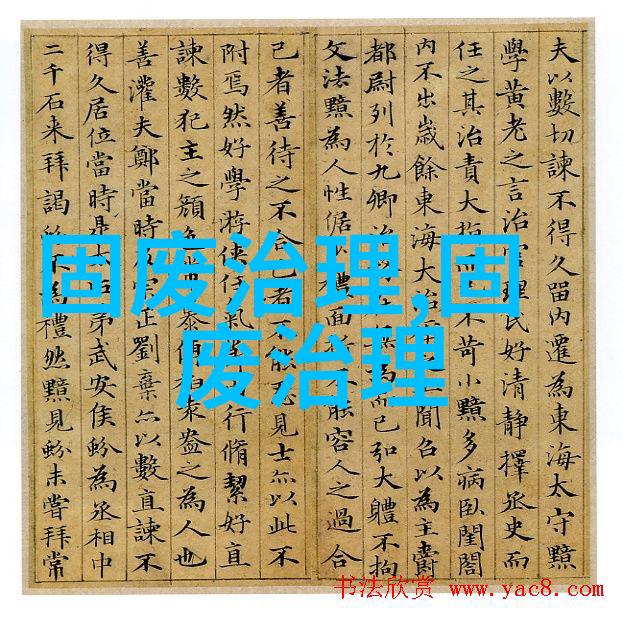 夫以數切諫不得久留內遷為東海太守黯
學黃老之言治官理民好清静擇丞史而
任之其治責大指而不苛小黯多病臥閨閤
內不出歲餘東海大治聞召以為主爵
都尉列於九卿治為而已弘大軆不拘
文法黯為人性倨少禮面折不能容人之過合
己者善待之不合己者不能忍見士亦以此不
附焉然好學游俠任氣行脩絜好直
諫數犯主之顏色常慕傅柏袁盎之為人也
善灌夫鄭當時及宗正劉棄亦以數直諫不
得久居位當時是太后弟武安侯蚡為丞相中
二千石来拜謁蚡不為禮然黯見蚡未嘗拜常
固废治理,固
废治理
书法欣赏 www.yac8.com